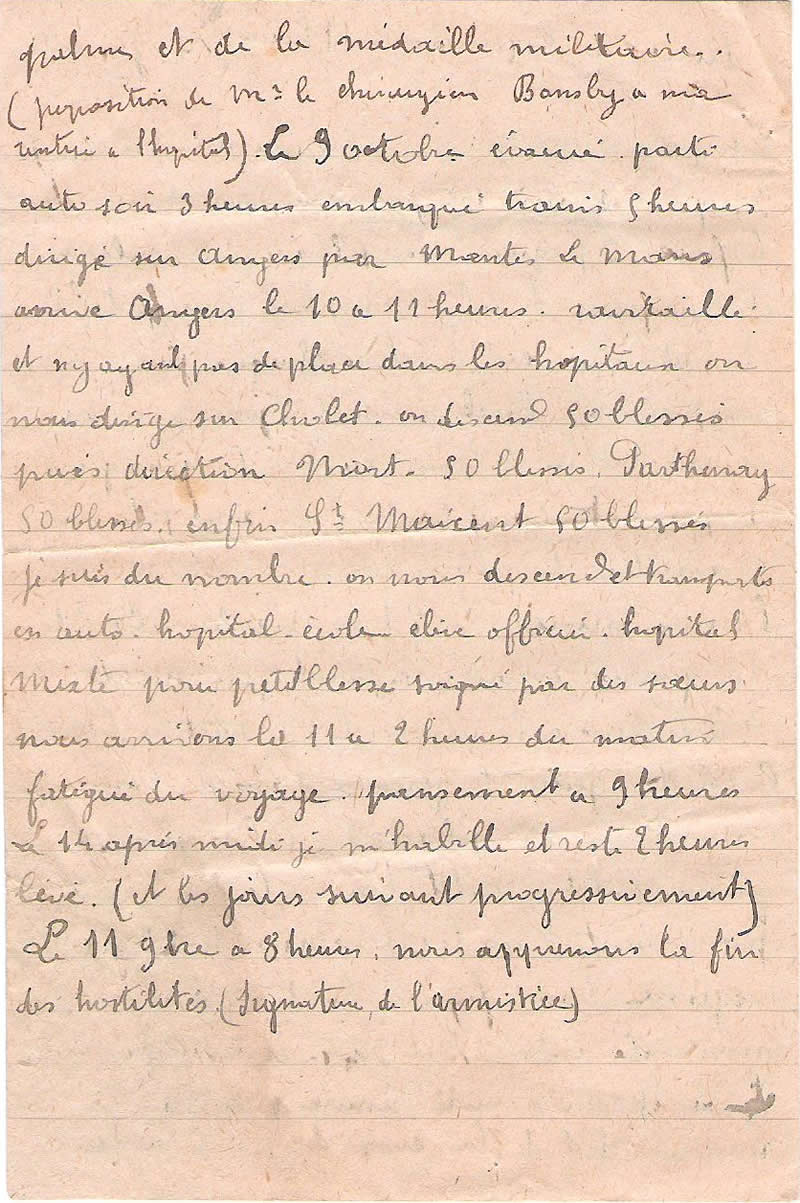 palmes et de la médaille militaire.
(proposition de Mr le chirurgien Bansby a ma
rentrée a l'hopital). Le 9 octobre évacué. parti
auto soir 3 heures embarqué train 5 heures
dirigé sur Angers par Mantes Le Mans
arrivé Angers le 10 a 11 heures. ravitaillé
et ny ayant pas de place dans les hopitaux on
nous dirige sur Cholet. on descend 50 blessés
puis direction Niort. 50 blessés, Parthenay
50 blessés. enfin St Maixent 50 blessés
je suis du nombre. on nous descend et transporte
en auto. hopital. école élève officier. hopital
Mixte pour petit blessé soigné par des sœurs
nous arrivons le 11 a 2 heures du matin
fatigué du voyage. pansement a 9 heures
Le 14 aprés midi je m'habille et reste 2 heures
levé. (et les jours suivant progressivement)
Le 11 9bre a 8 heures, nous apprenons la fin
des hostilités. (Signature, de l'armistice)